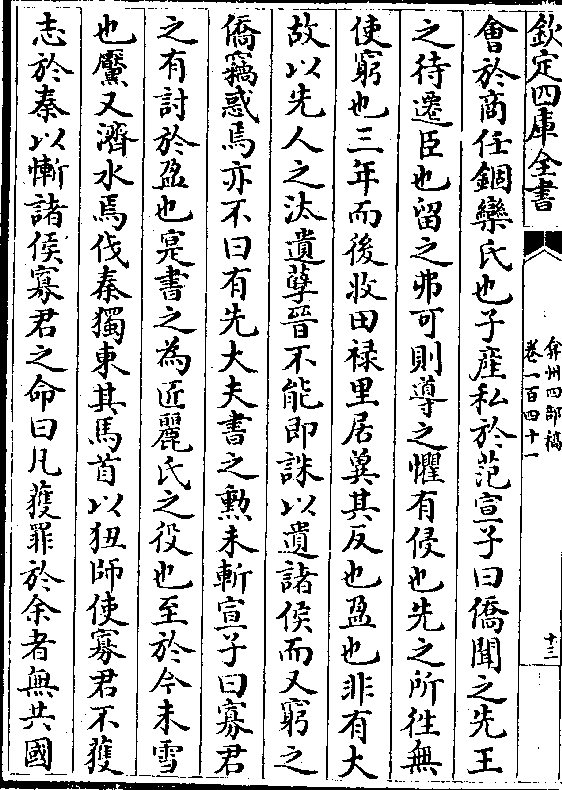 欽定四庫全書
弇州四部稿
卷一百四十一
十三
會於商任錮欒氏也子產私於范宣子曰僑聞之先王
之待遷臣也留之弗可則導之懼有侵也先之所徃無
使窮也三年而後收田禄里居冀其反也盈也非有大
故以先人之汰遺孽晉不能即誅以遺諸侯而又窮之
僑竊惑焉亦不曰有先大夫書之勲未斬宣子曰寡君
之有討於盈也寔書之為匠麗氏之役也至於今未雪
也黶又濟水焉伐秦獨東其馬首以狃師使寡君不獲
志於秦以慚諸侯寡君之命曰凡獲罪於余者無共國